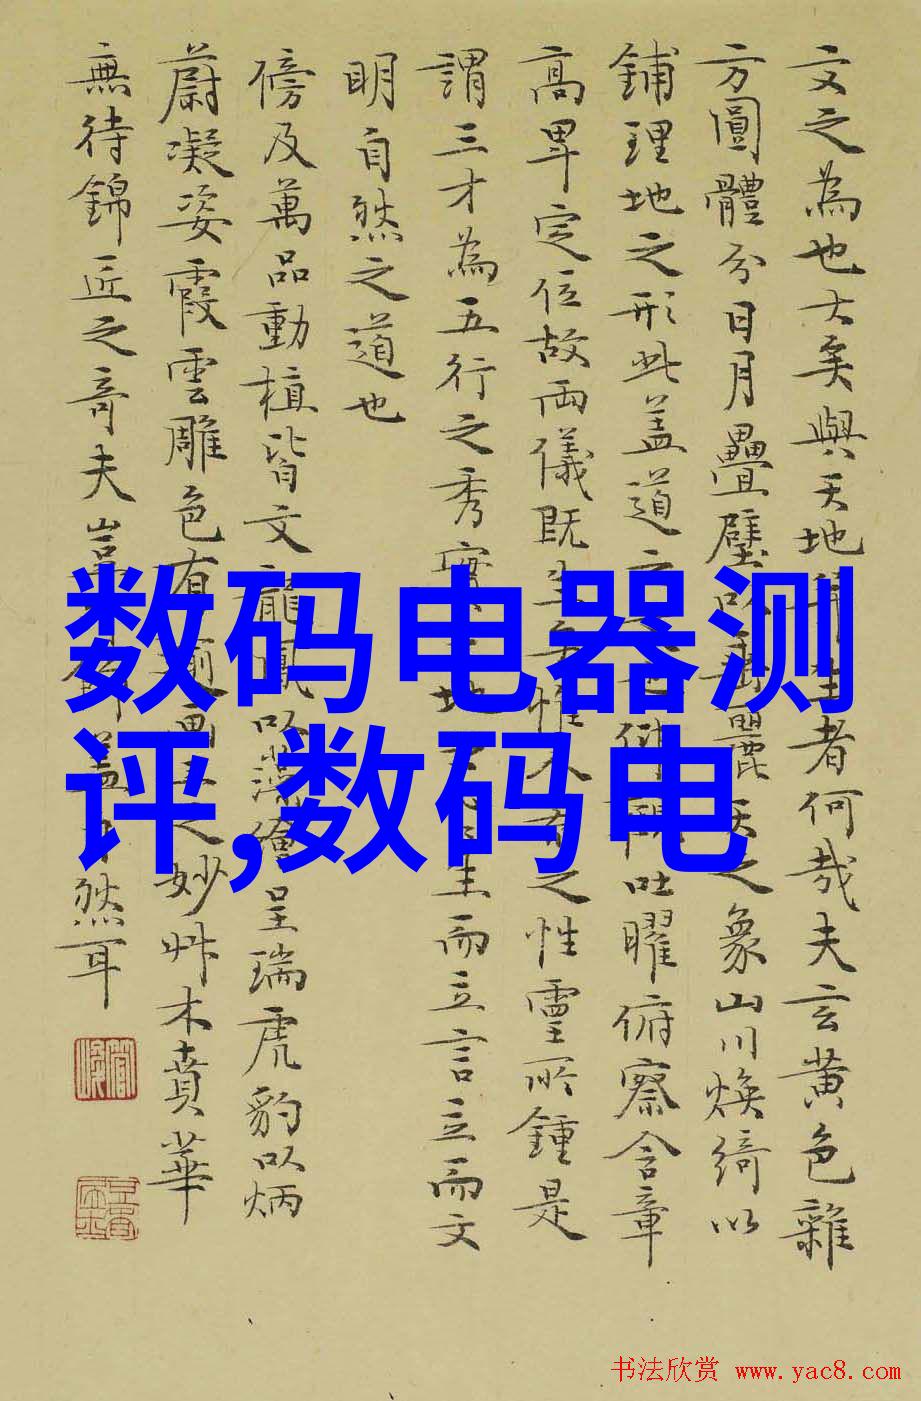 文之為也大矣與天地生者何哉夫玄黃色雜
方圓體分日月疊璧以垂麗天之象山川煥綺以
鋪理地之形此盖道之吐曜俯察含章
高卑定位故兩儀既生惟人之性靈所鍾是
謂三才為五行之秀實地生而立言立而文
明自然之道也
傍及萬品動植皆文龍鳳以藻繪呈瑞虎豹以炳
蔚凝姿霞雲雕色有之妙艸木賁華
無待錦匠之奇夫豈然耳
数码电器测
评,数码电
书法欣赏 www.yac8.com